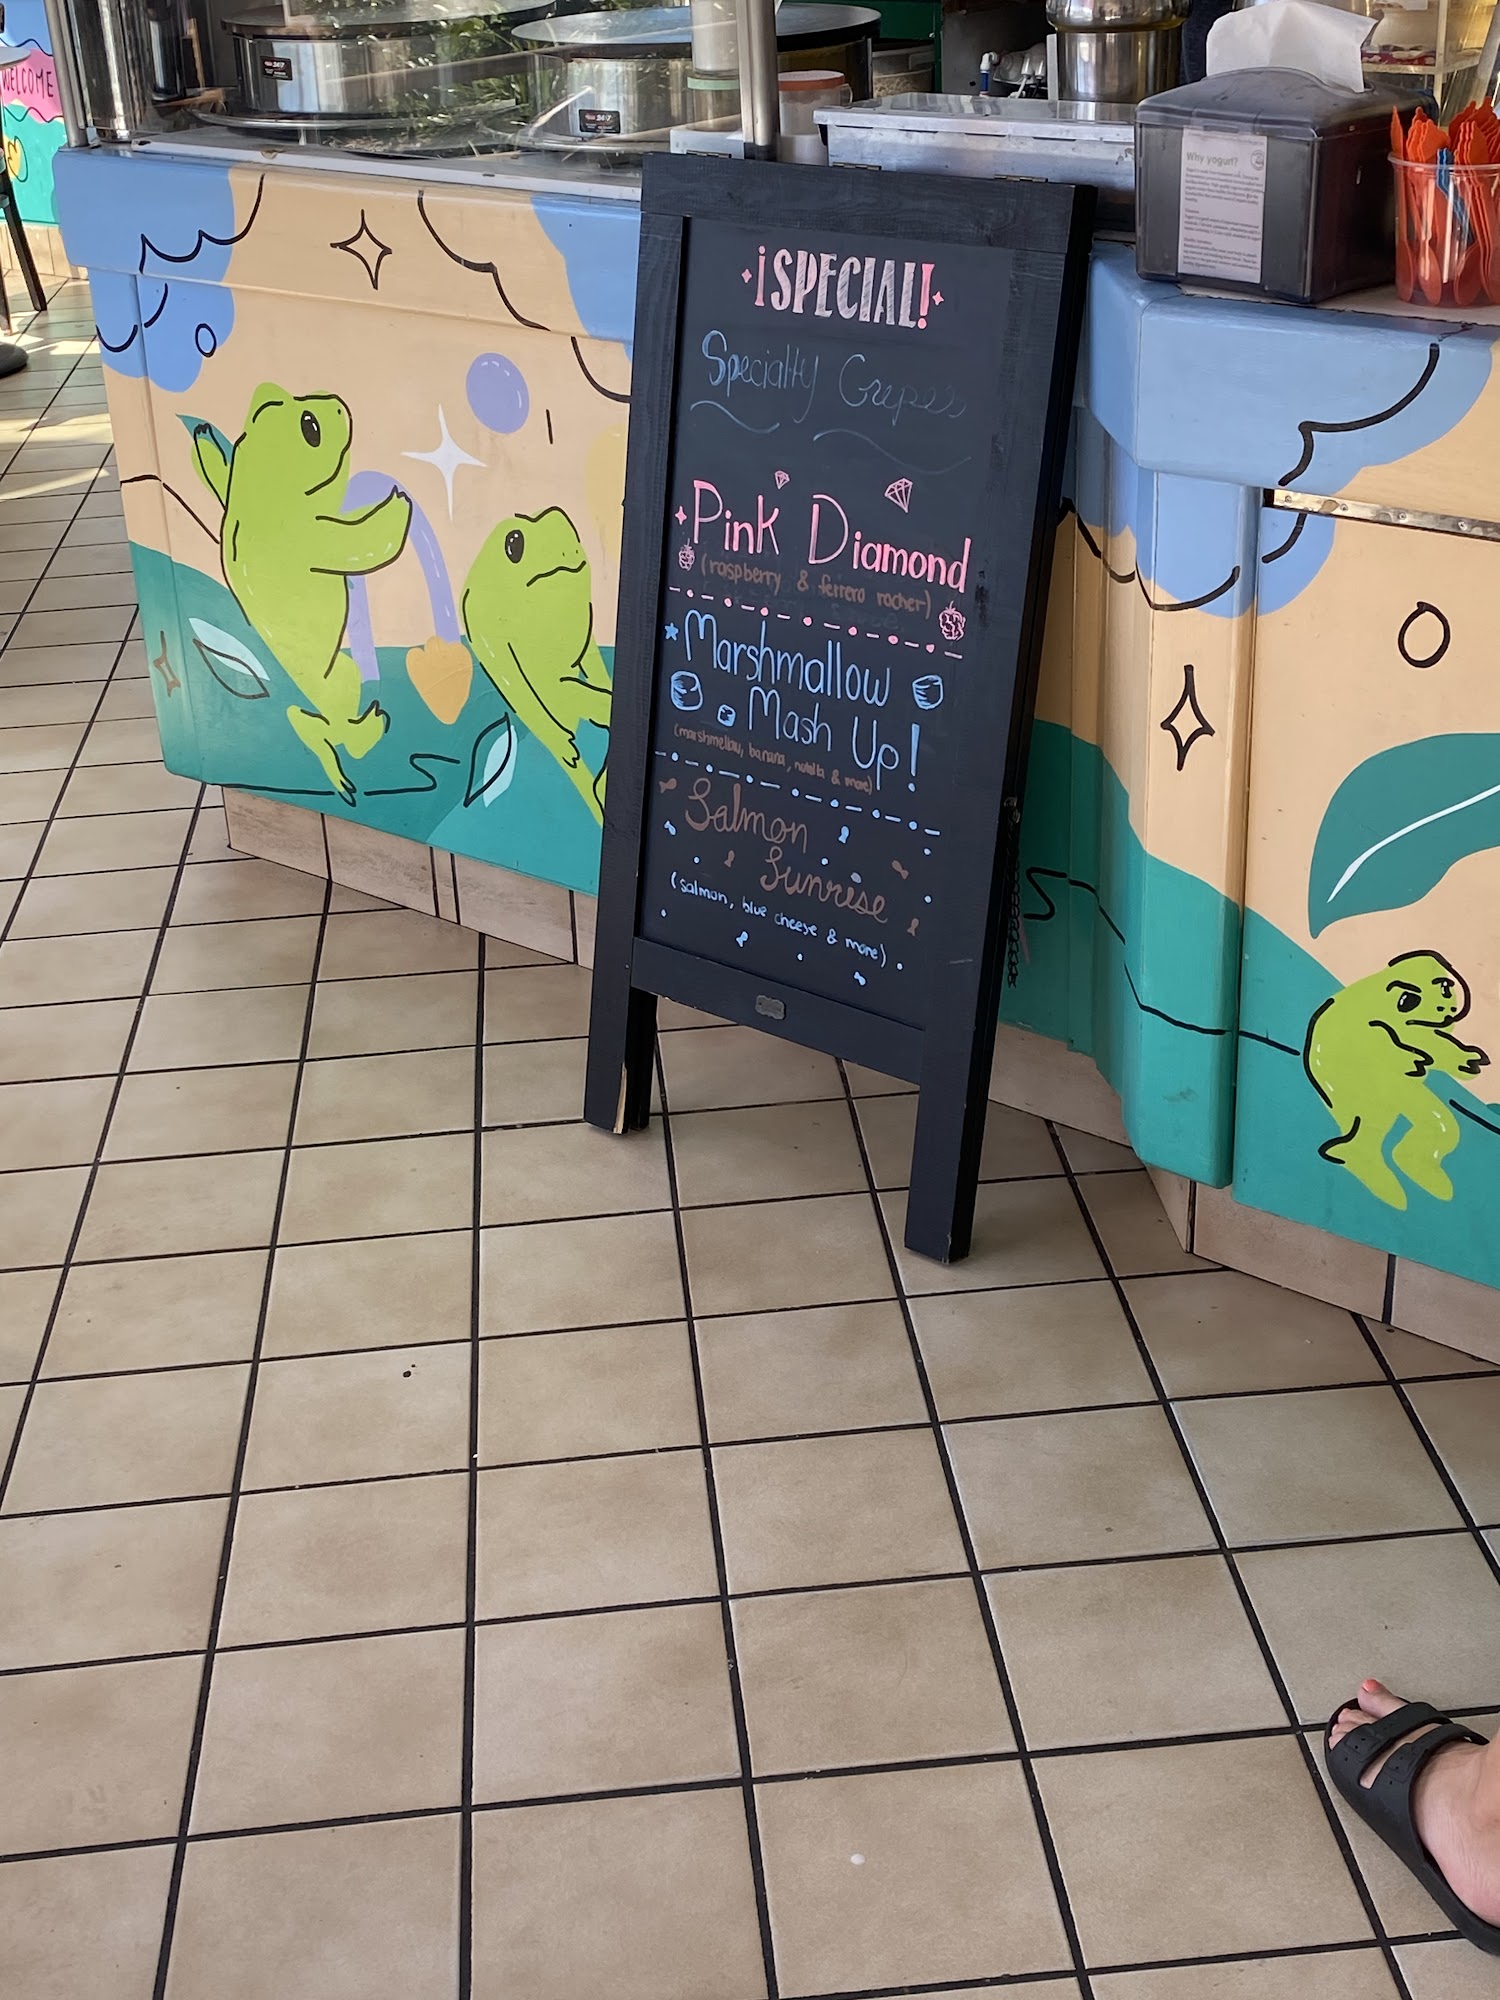 WELCOME
Why yogurt?
¡SPECIAL!
Specialty Crepes
Pink Diamond
(raspberry & ferrero rocher)
Marshmallow
Mash Up!
(marshmellow, banana, nutella & more)
Salmon
Sunrise
(salmon, blue cheese & more)